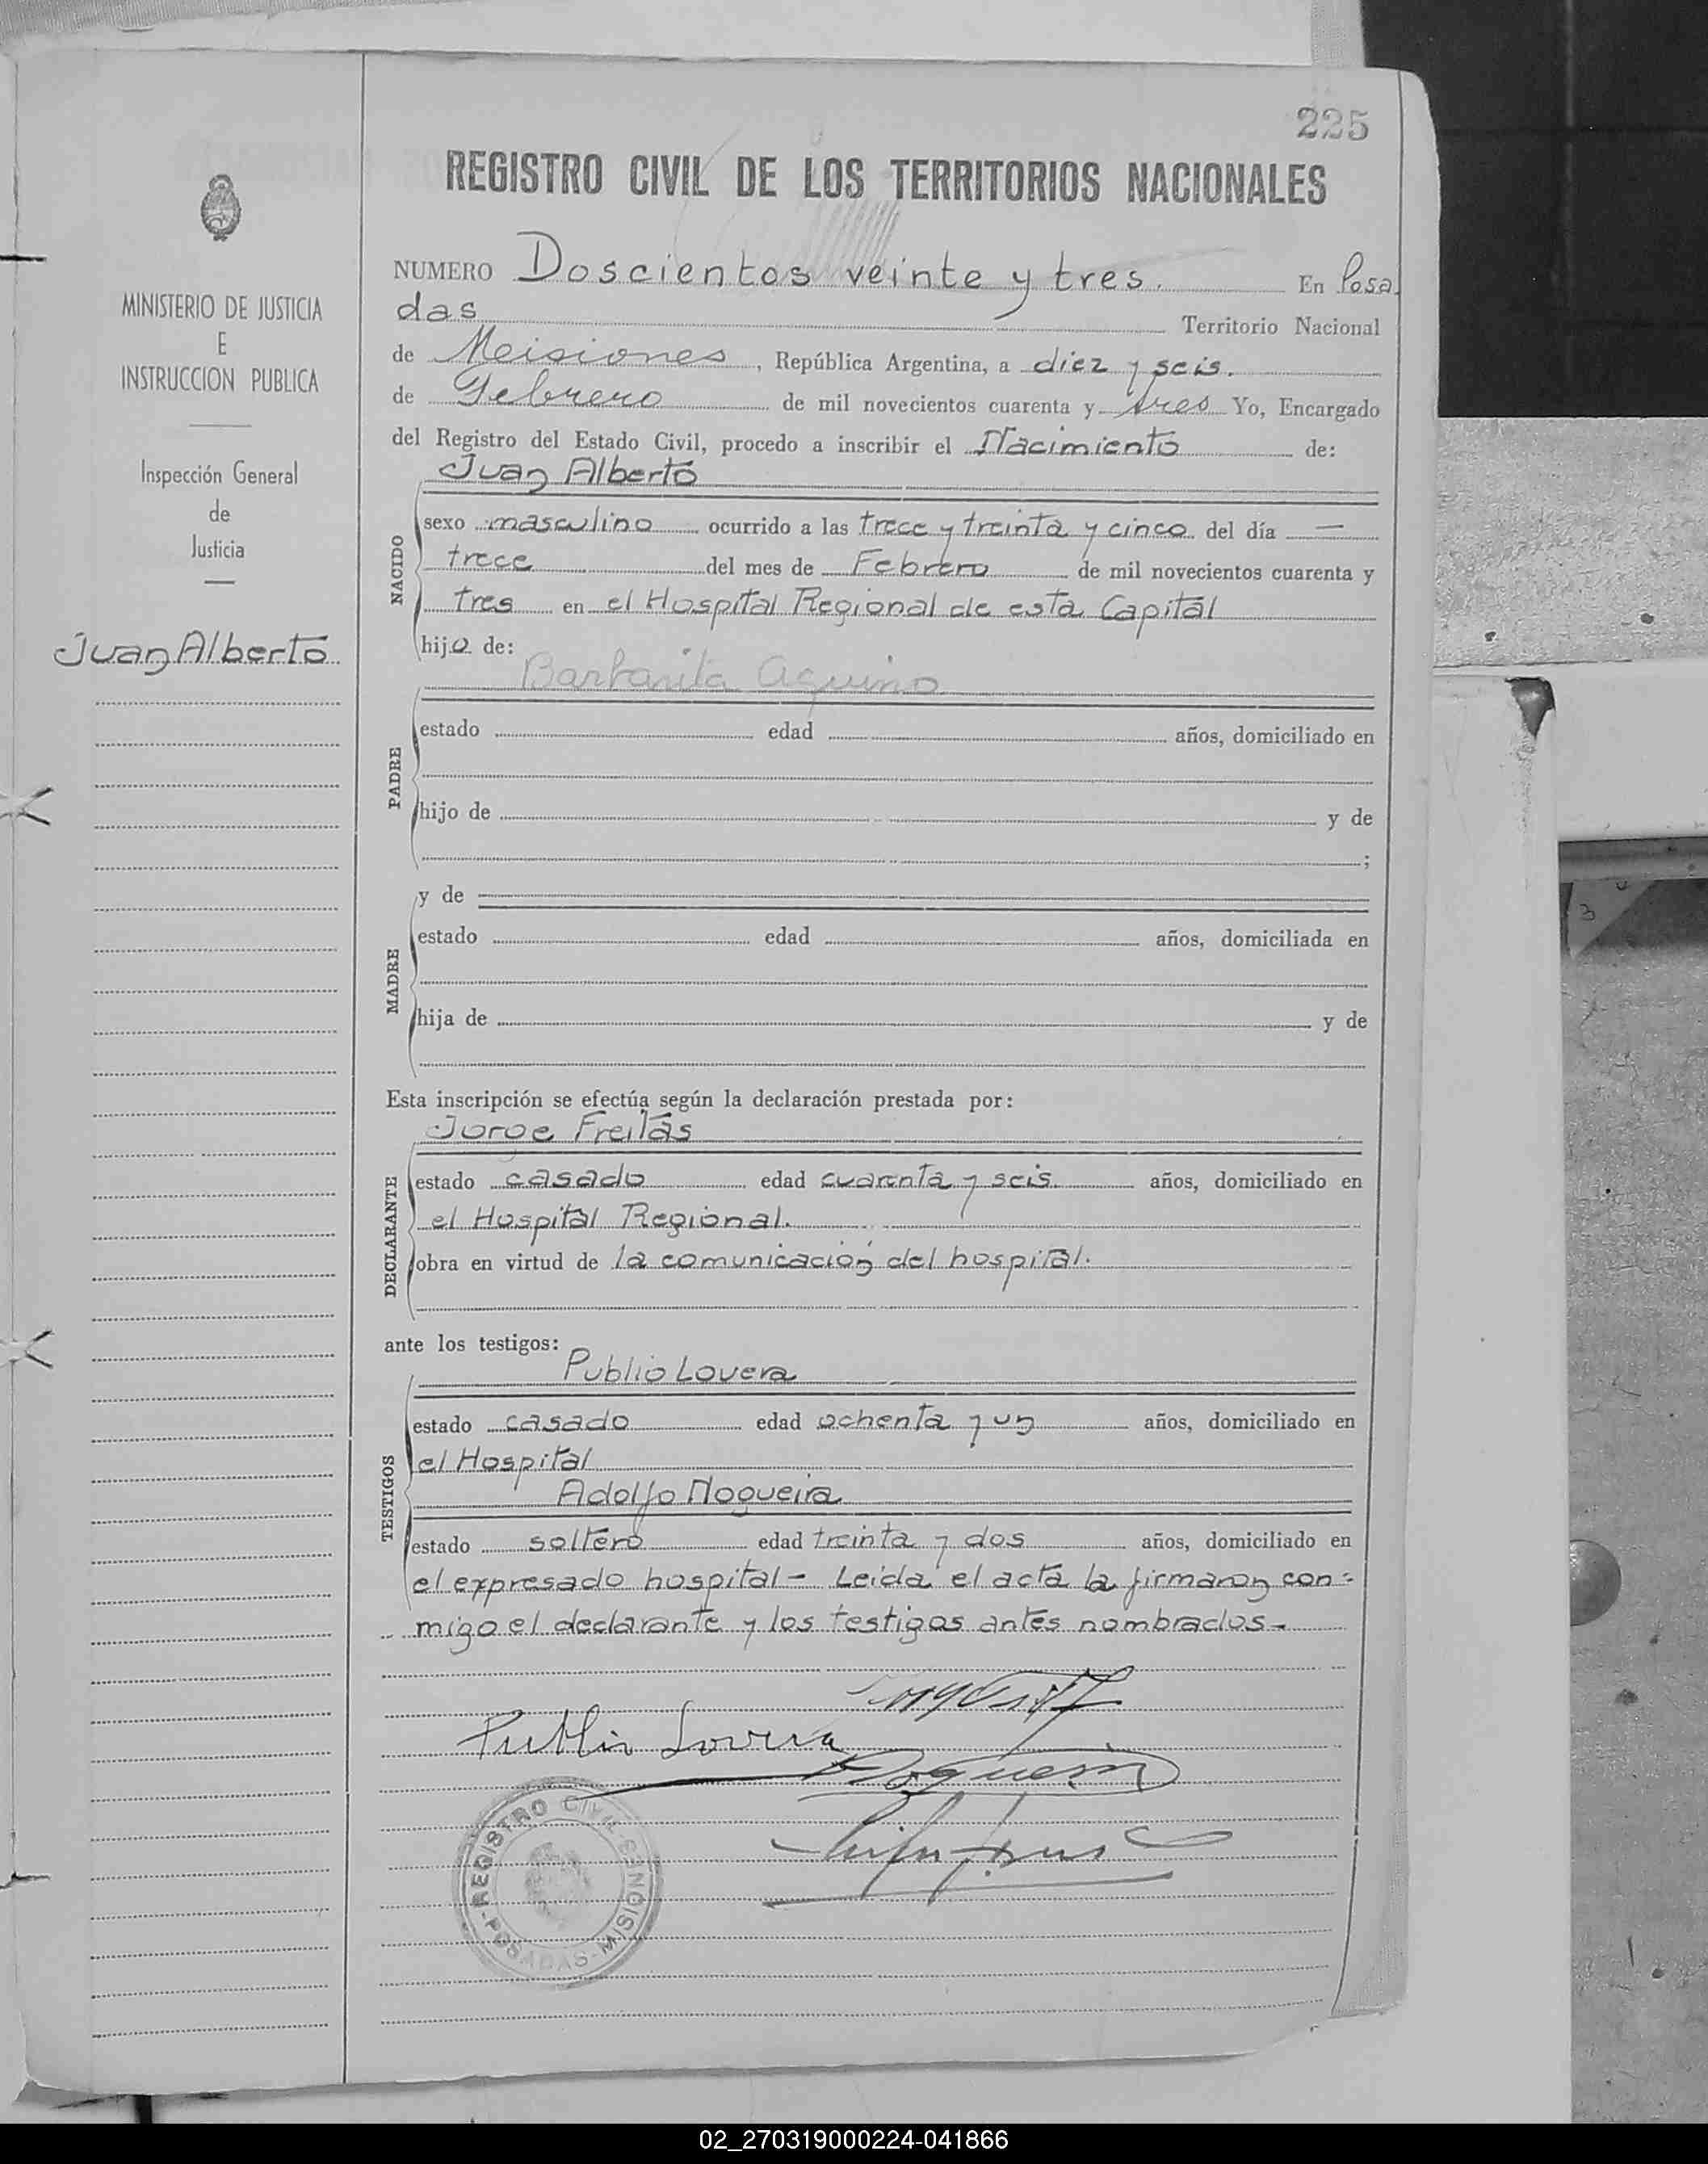 225
REGISTRO CIVIL DE LOS TERRITORIOS NACIONALES
MINISTERIO DE JUSTICIA
E
INSTRUCCION PUBLICA
Inspección General
de
Justicia
Juan Alberto
NUMERO Doscientos veinte y tres. En Posa
das Territorio Nacional
de Meisiones, República Argentina, a diez y seis.
de Febrero de mil novecientos cuarenta y tres Yo, Encargado
del Registro del Estado Civil, procedo a inscribir el Nacimiento de:
Juan Alberto
NACIDO
sexo masculino ocurrido a las trece y treinta y cinco del día —
trece del mes de Febrero de mil novecientos cuarenta y
tres en el Hospital Regional de esta Capital
hijo de:
Barbarita Aquino
PADRE
estado edad años, domiciliado en
hijo de y de
;
y de
MADRE
estado edad años, domiciliada en
hija de y de
Esta inscripción se efectúa según la declaración prestada por:
Jorge Freitas
DECLARANTE
estado casado edad cuarenta y seis. años, domiciliado en
el Hospital Regional.
obra en virtud de la comunicación del hospital.
ante los testigos:
Publio Lovera
TESTIGOS
estado casado edad ochenta y un años, domiciliado en
el Hospital
Adolfo Nogueira
estado soltero edad treinta y dos años, domiciliado en
el expresado hospital - Leida el acta la firmaron con=
migo el declarante y los testigos antes nombrados-
Publio Lovera
Nogueira
REGISTRO CIVIL
POSADAS - MISIONES
02_270319000224-041866